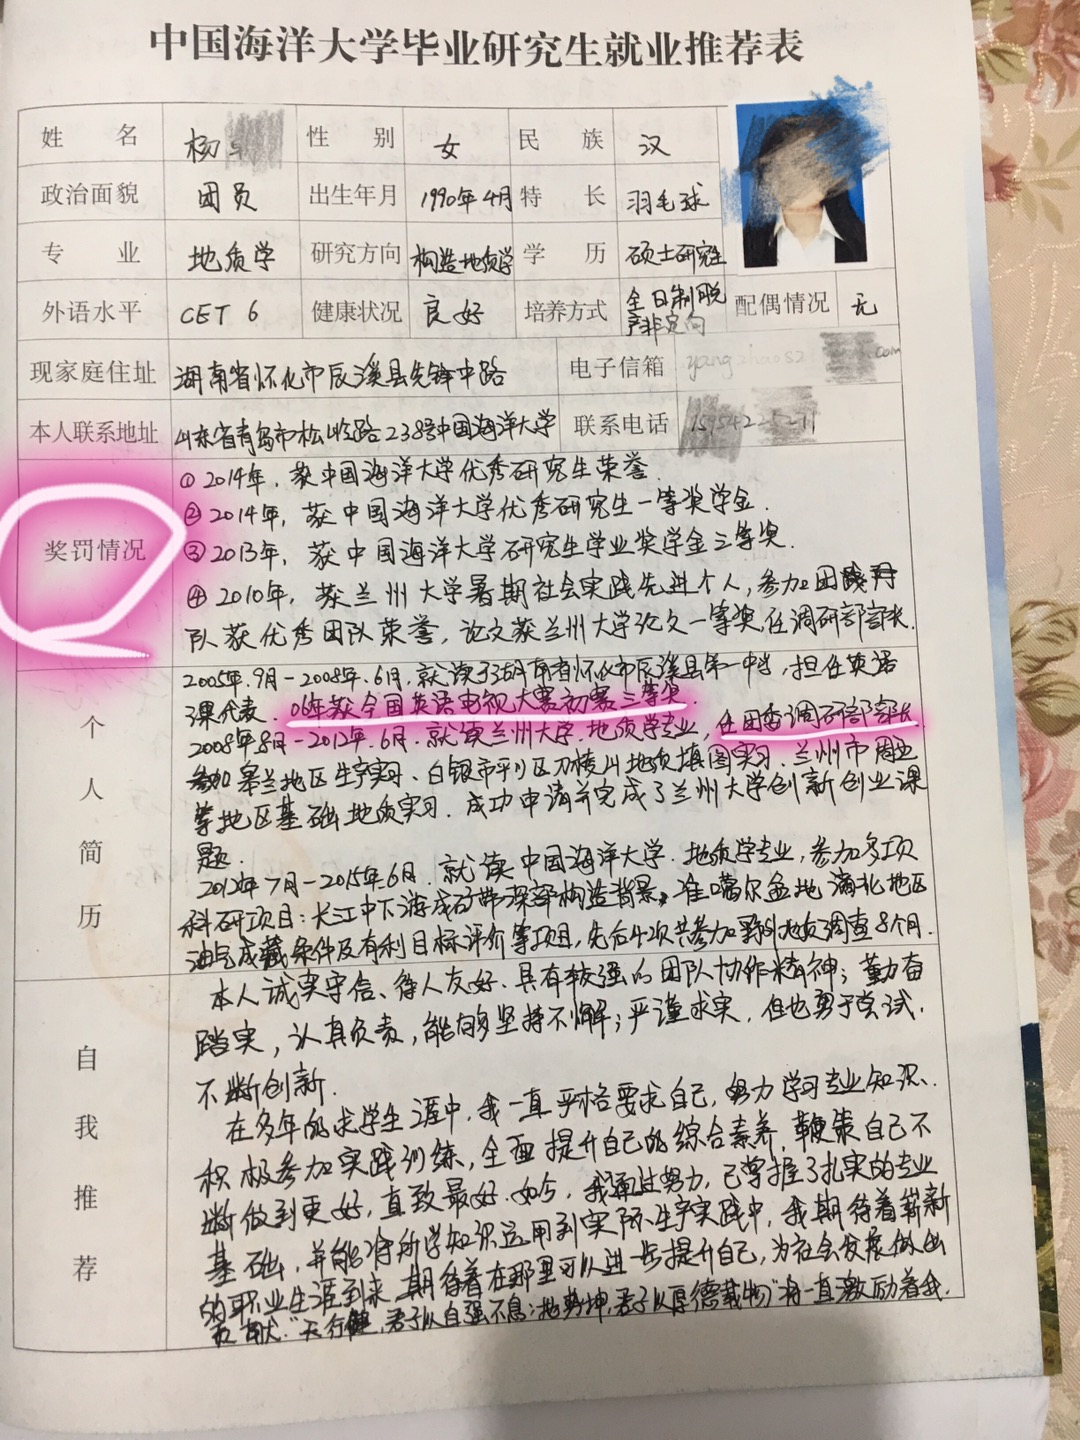 中国海洋大学毕业研究生就业推荐表
姓名 杨 性别 女 民族 汉
政治面貌 团员 出生年月 1990年4月 特长 羽毛球
专业 地质学 研究方向 构造地质学 学历 硕士研究生
外语水平 CET 6 健康状况 良好 培养方式 全日制脱产非定向 配偶情况 无
现家庭住址 湖南省怀化市辰溪县先锋中路 电子信箱 .com
本人联系地址 山东省青岛市松岭路238号中国海洋大学 联系电话
奖罚情况
①2014年,获中国海洋大学优秀研究生荣誉.
②2014年,获中国海洋大学优秀研究生一等奖学金.
③2013年,获中国海洋大学研究生学业奖学金三等奖.
④2010年,获兰州大学暑期社会实践先进个人,参加团
队获优秀团队荣誉,论文获兰州大学论文一等奖,任调研部部长.
个人简历
2005年.9月-2008年.6月,就读于湖南省怀化市辰溪县第一中学,担任英语
课代表.06年获全国英语电视大赛初赛三等奖.
2008年8月-2012年.6月.就读兰州大学.地质学专业,任团委调研部部长
参加皋兰地区生产实习、白银市平川区刀楞山地质填图实习.兰州市周边
等地区基础地质实习.成功申请并完成了兰州大学创新创业课
题.
2012年7月-2015年6月.就读中国海洋大学.地质学专业,参加多项
科研项目:长江中下游成矿带深部构造背景,准噶尔盆地滴北地区
油气成藏条件及有利目标评价等项目,先后4次共参加野外地质调查8个月.
自我推荐
本人诚实守信、待人友好、具有较强的团队协作精神;勤奋
踏实,认真负责,能够坚持不懈;严谨求实,但也勇于尝试.
不断创新.
在多年的求学生涯中,我一直严格要求自己,努力学习专业知识、
积极参加实践训练,全面提升自己的综合素养,鞭策自己不
断做到更好,直致最好.如今,我通过努力,已掌握了扎实的专业
基础,并能将所学知识运用到实际生产实践中,我期待着崭新
的职业生涯到来,期待着在那里可以进一步提升自己,为社会发展做出
贡献."天行健,君子以自强不息;地势坤,君子以厚德载物"将一直激励着我.